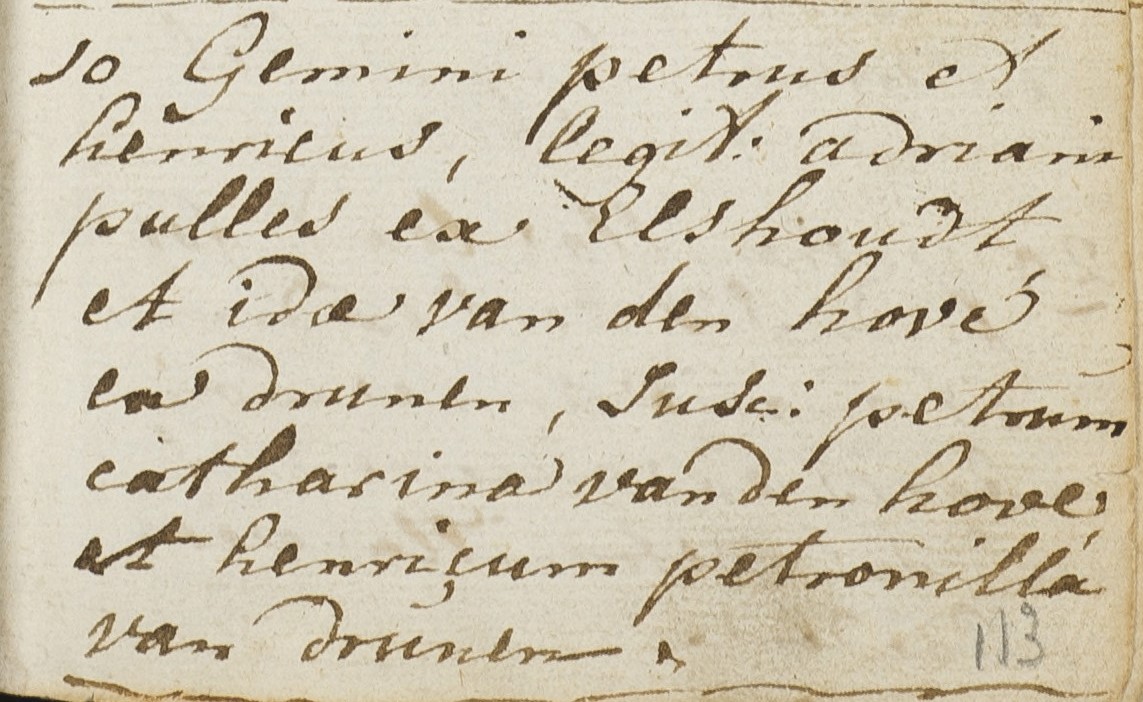 10 Gemini petrus et
henricus, legit: adriani
pulles ex Elshoudt
et idae van den hove
ex drunen, Susc: petrum
catharina vanden hove,
et henricum petronilla
van drunen.
113